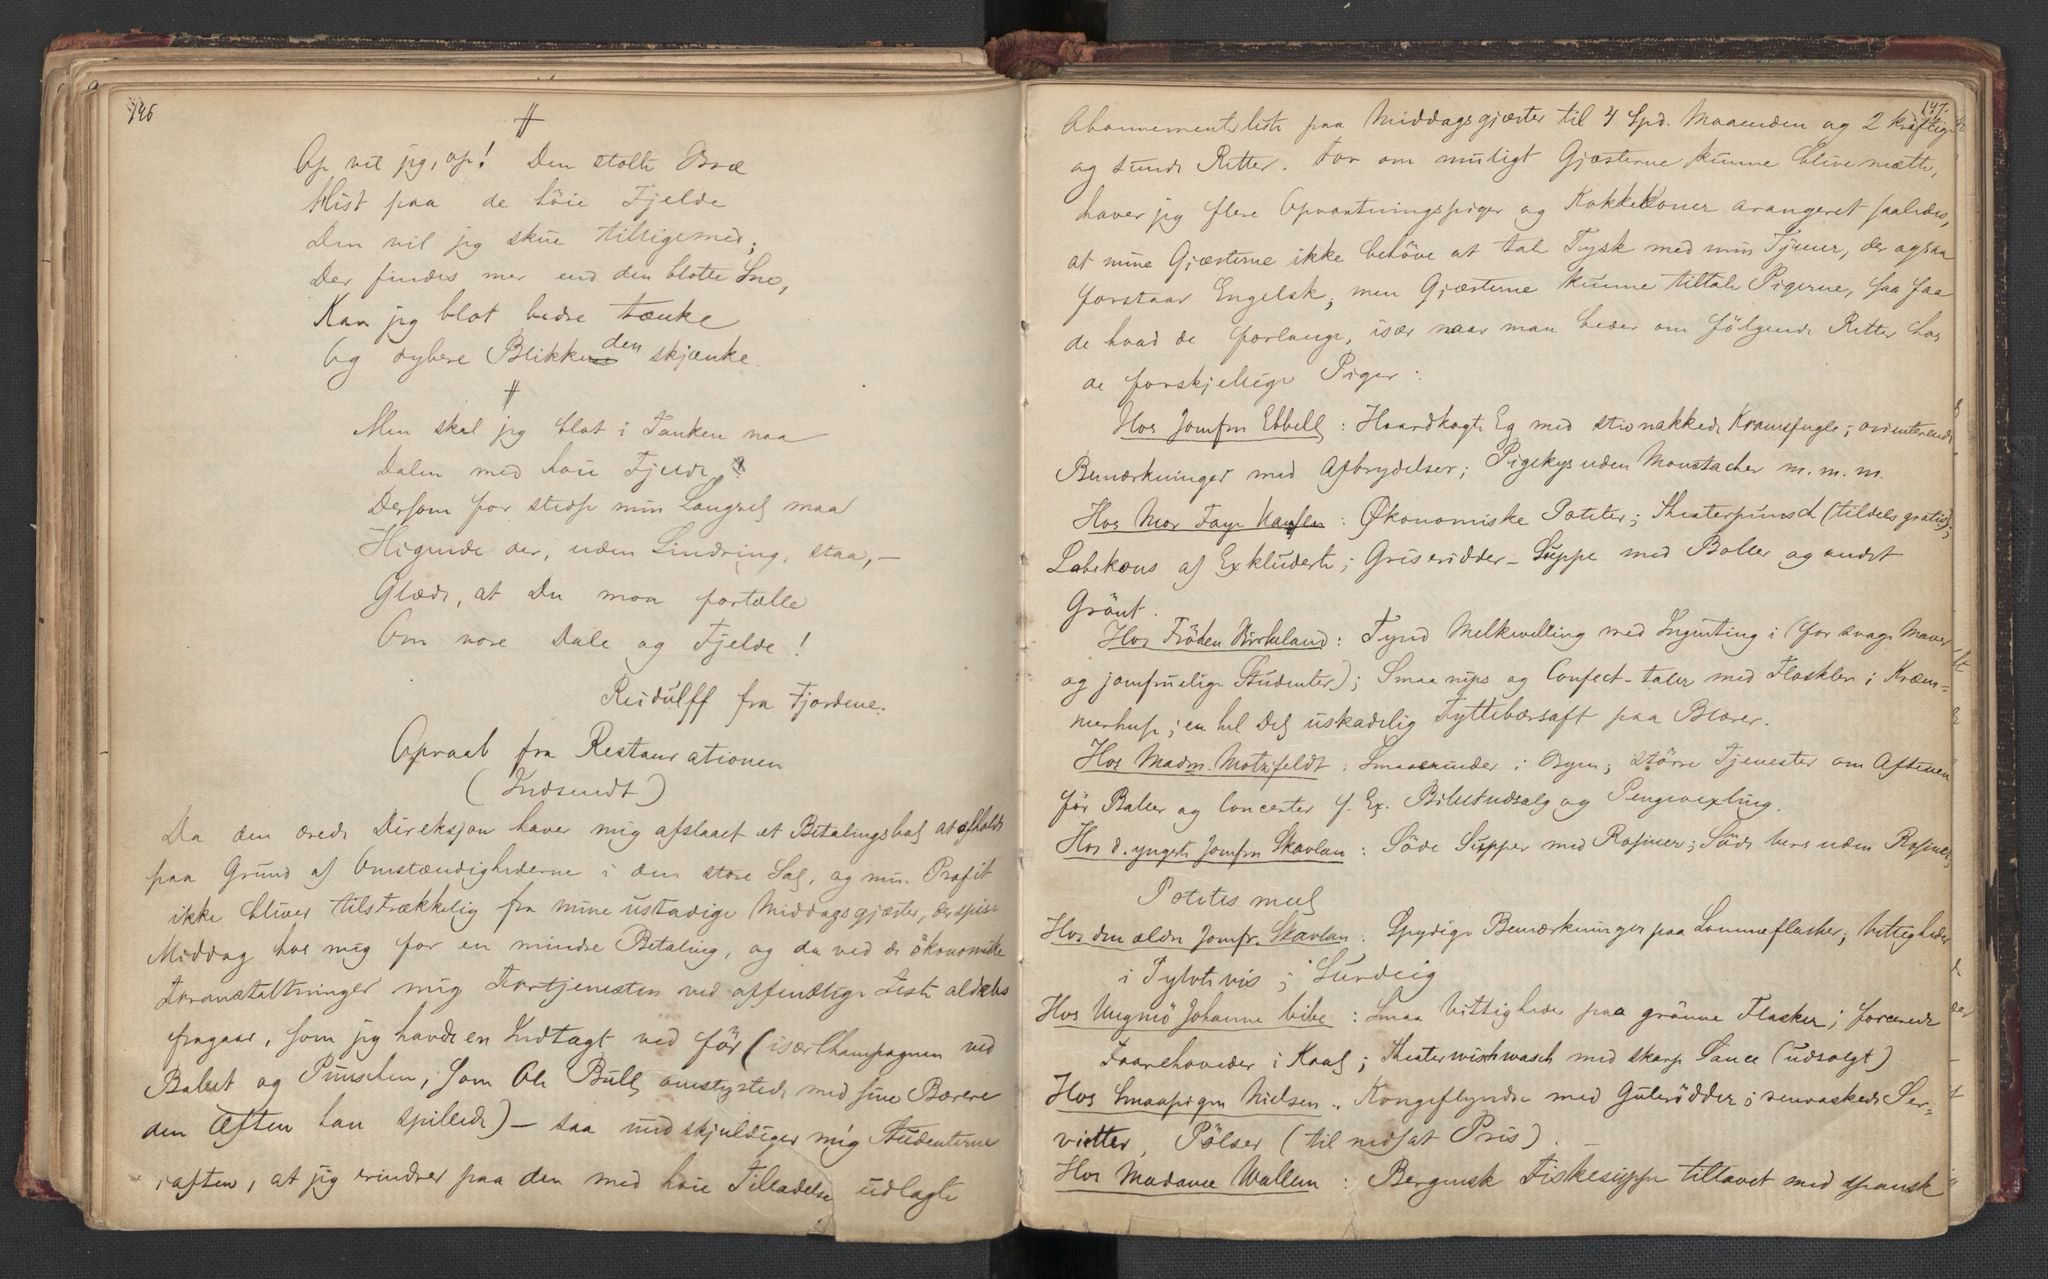 146
#
Op vil jeg, op! Den stolte Bræ
Hist paa de höie Fjelde
Den vil jeg skue tilligemed;
Der findes mer end den blotte Sne,
Kan jeg blot bedre tænke
Og dybere Blikke den skjænke.
#
Men skal jeg blot i Tanken naa
Dalen med höie Fjelde?
Dersom for stedse min Längsel maa
Higende der, uden Lindring, staa, —
Glæde, at Du maa fortælle
Om vore Dale og Fjelde!
Reidulff fra Fjordene.
Opraab fra Restaurationen
(Indsendt)
Da den ærede Direksjon haver mig afslaaet et Betalingsbal at afholde
paa Grund af Omstændighederne i den store Sal, og min Profit
ikke bliver tilstrækkelig fra mine ustadige Middagsgjæster, der spise
Middag hos mig for en mindre Betaling, og da ved de ökonomiske
Foranstaltninger mig Fortjenesten ved offentlige Feste aldeles
fragaar, som jeg havde en Indtægt ved för (især Champagnen ved
Ballet og Punschen, som Ole Bull omstyrtede med sine Bærere
den Aften han spillede) — saa undskyldiger mig Studenterne
iaften, at jeg erindrer paa den med höie Tilladelse udlagte
147.
Abonnementsliste paa Middagsgjæster til 4 Spd. Maaneden og 2 kräftige
og sunde Retter. For om muligt Gjæsterne kunne blive mætte,
haver jeg flere Opvartningspiger og Kokkekoner arangeret saaledes,
at mine Gjæsterne ikke behöve at tale Tysk med min Tjener, der ogsaa
forstaar Engelsk, men Gjæsterne kunne tiltale Pigerne, saa faa
de hvad de forlange, især naar man beder om fölgende Retter hos
de forskjellige Piger:
Hos Jomfru Ebbell: Haardkogte Eg med stivnakkede Kramsfugle; orienterende
Bemærkninger med Afbrydelser; Pigekys uden Moustacher m. m. m.
Hos Mor Faye Hansen: Økonomiske Poteter; Theaterpunsch (tildels gratis);
Labskous af Exkluderte; Griseridder-Suppe med Boller og andet
Grönt.
Hos Fröken Birkeland: Tynd Melkevelling med Ingenting i (for svage Maver
og jomfruelige Studenter); Smaa nips og Confect-taler med Flaskler i Kræm-
merhuse; en hel Del uskadelig Tyttebærsaft paa Blærer.
Hos Madm. Motzfeldt: Smaaærinder i Byen; större Tjenester om Aftenen
för Baller og Concerter f. Ex. Billetudsalg og Pengevexling.
Hos d. yngste Jomfru Skavlan: Söde Supper med Rosiner; Söde bers uden Rosiner,
Potetes mel
Hos den ældre Jomfru Skavlan: Spydige Bemærkninger paa Lommeflasker; Vittigheder
i Tylvtevis; Surdeig
Hos Ungmö Johanne Vibe: Smaa Vittigheder paa grönne Flasker; forcerede
Faarehoveder i Kaal; Theaterwishwasch med skarp Sauce (udsolgt)
Hos Smaapigen Nielsen: Kongeflyndre med Gulerödder; renvaskede Ser-
vietter, Pölser (til nedsat Pris). —
Hos Madame Wallem: Bergensk Fiskesuppe tillavet med spansk